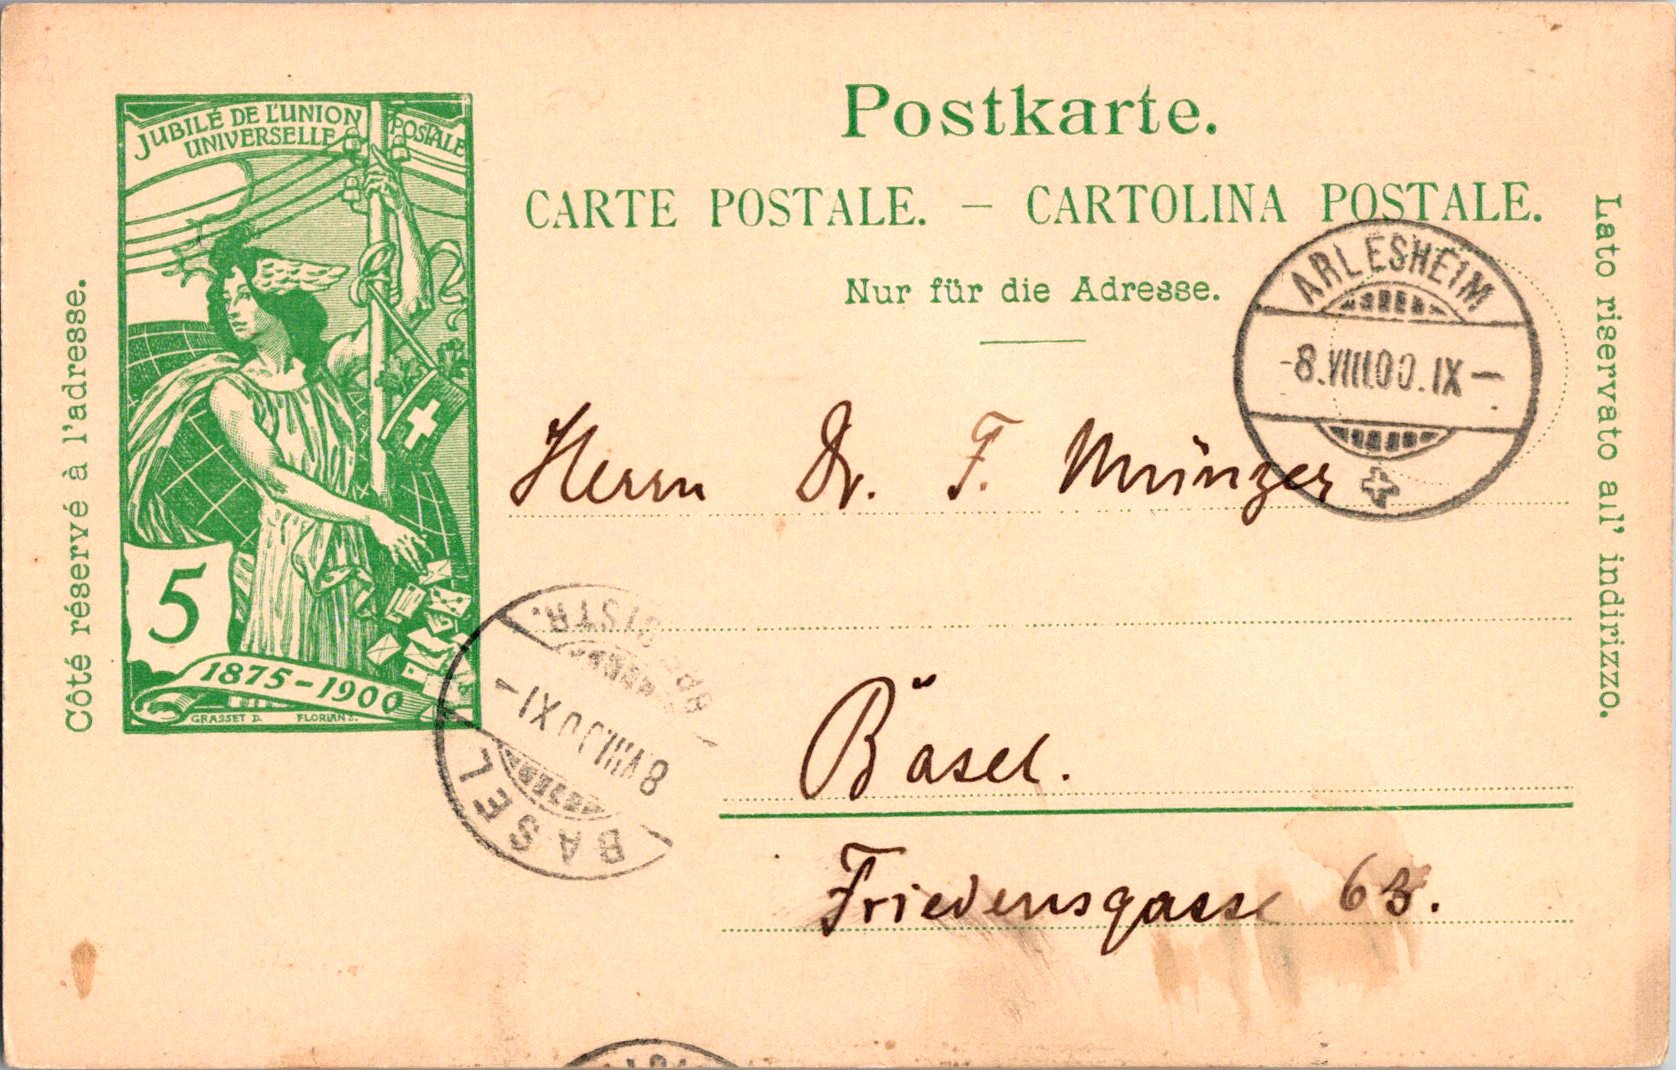 JUBILÉ DE L'UNION POSTALE
UNIVERSELLE
5
1875-1900
GRASSET D. FLORIAN S.
Postkarte.
CARTE POSTALE. — CARTOLINA POSTALE.
Nur für die Adresse.
Côté réservé à l'adresse.
Lato riservato all' indirizzo.
ARLESHEIM
-8.VIII.00.IX-
Herrn Dr. F. Münzer
Basel.
Friedensgasse 63.
BASEL
8.VIII.00 XI-
DISTR.